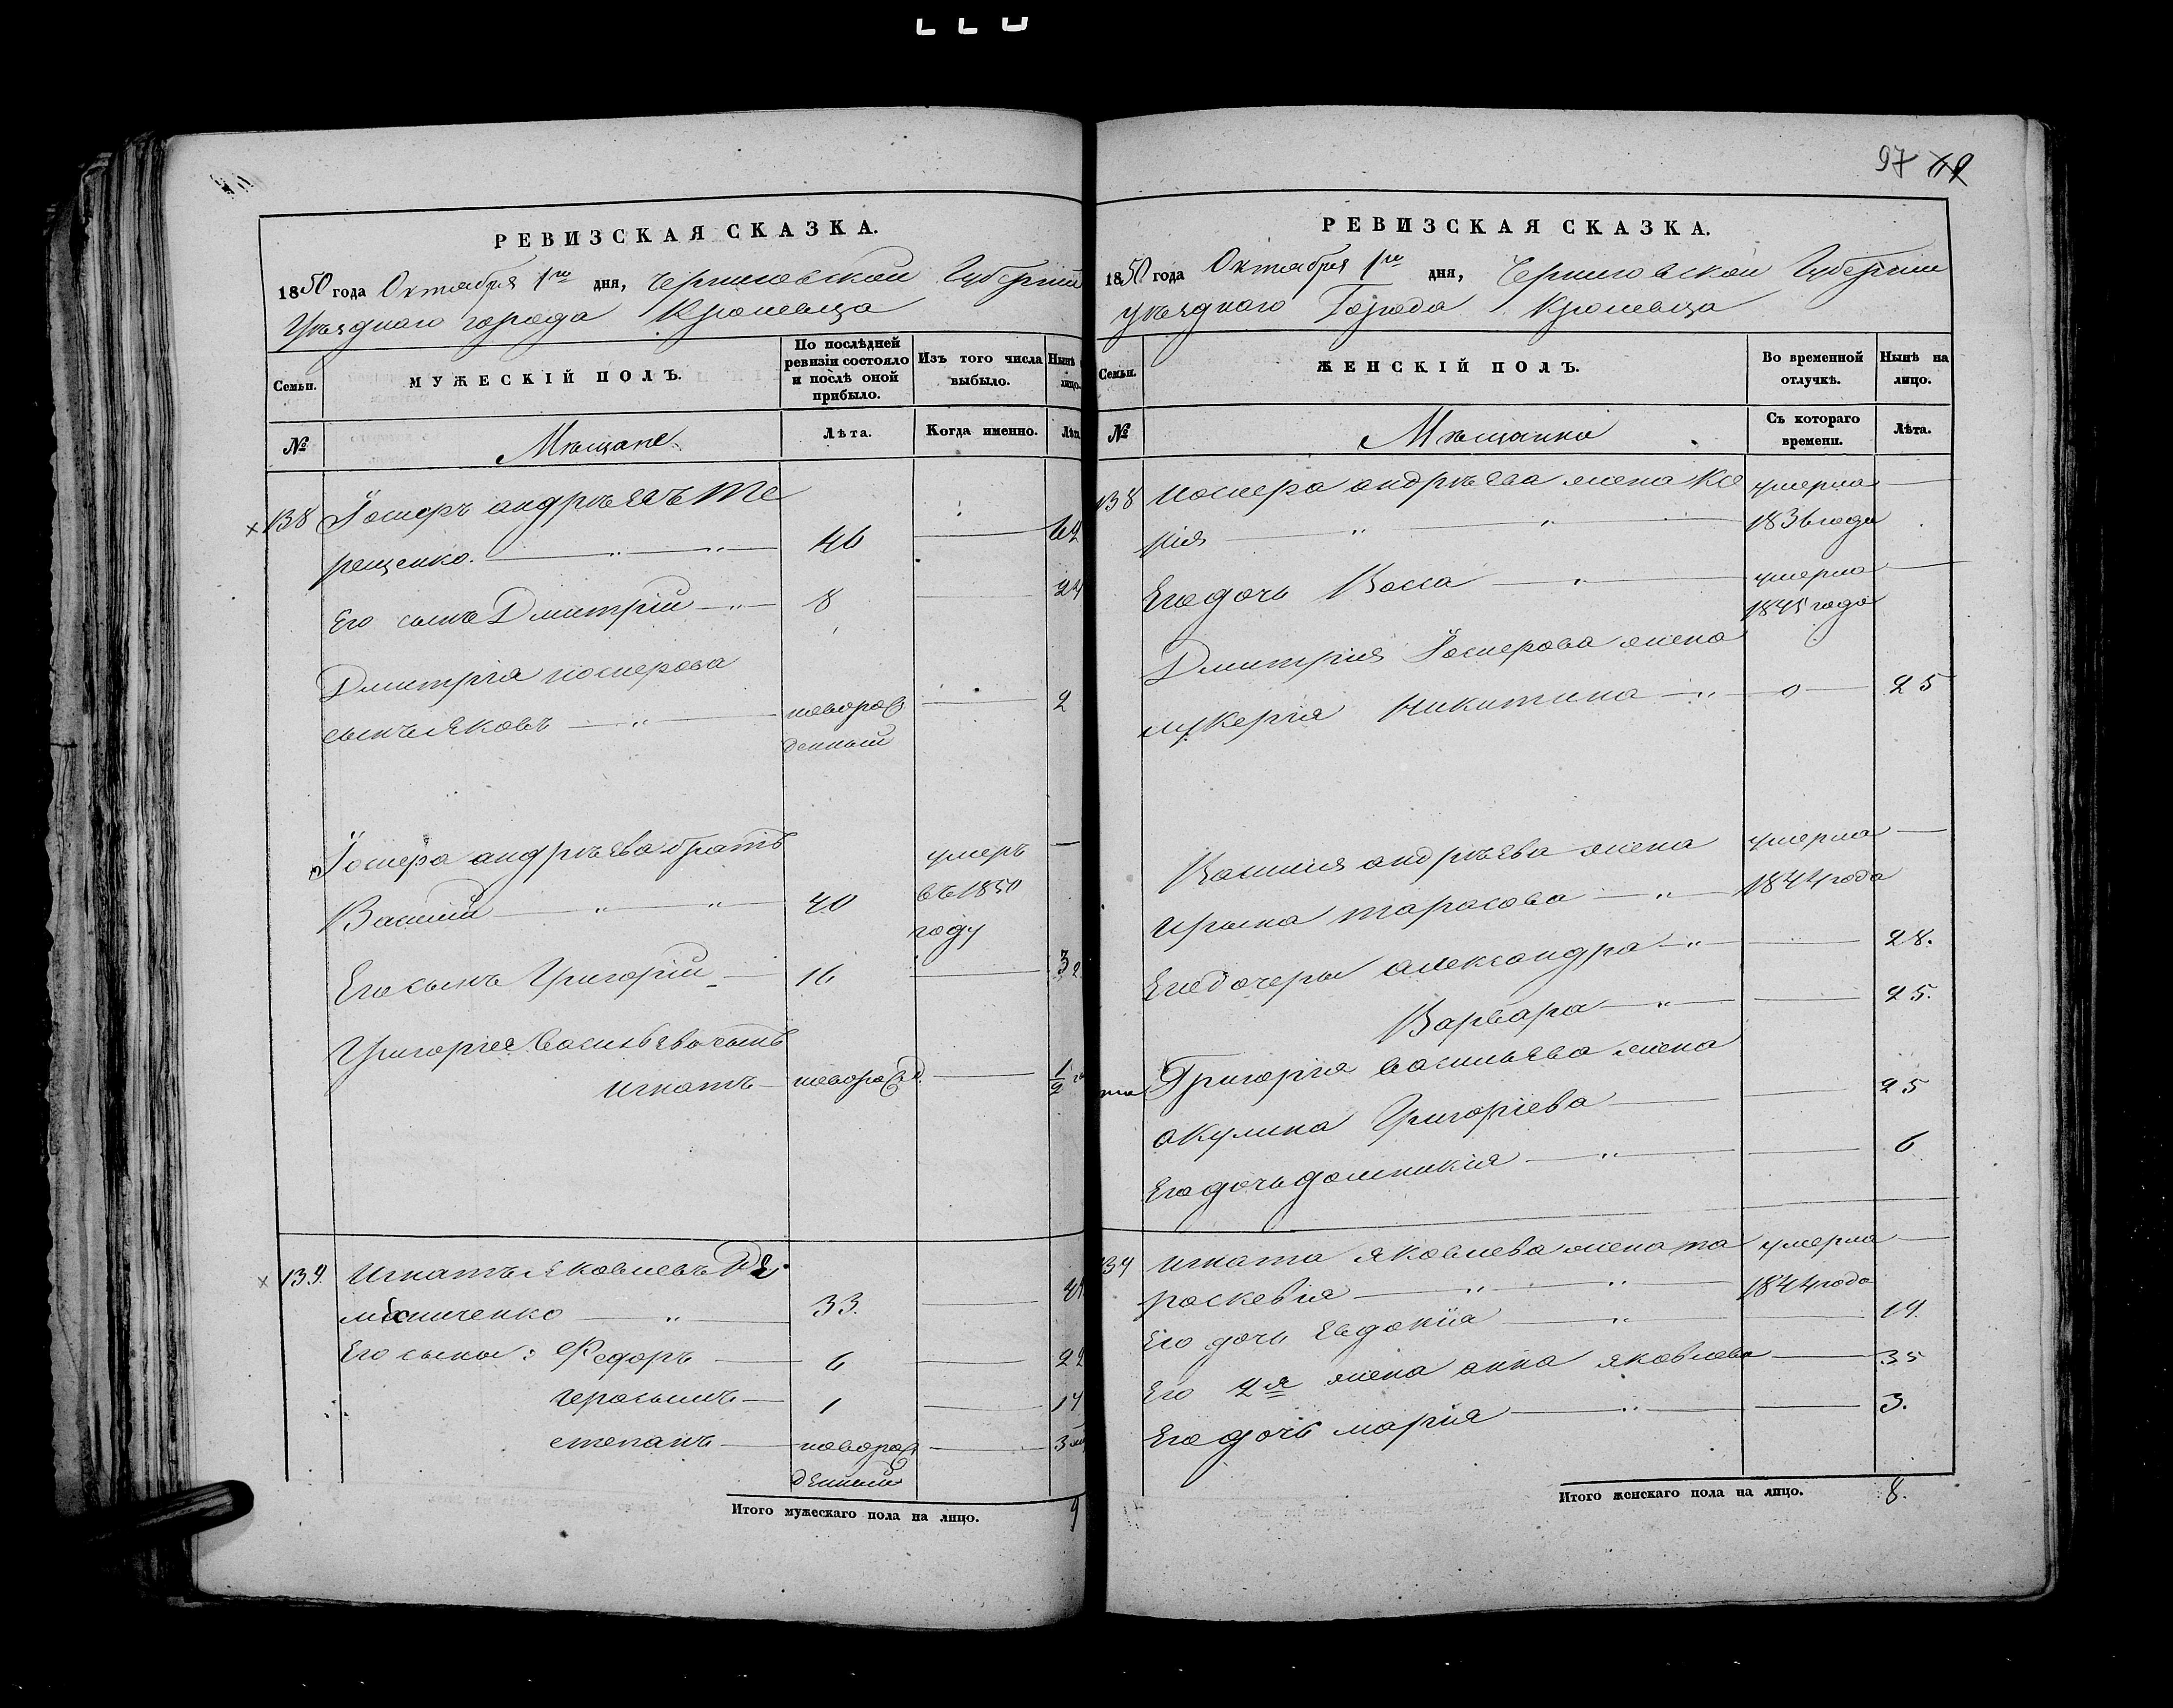 97
РЕВИЗСКАЯ СКАЗКА.
1850 года Октября 1го дня, Черниговской Губернии
Уѣзднаго города Кролевца
Семьи.
МУЖЕСКІЙ ПОЛЪ.
По послѣдней ревизіи состояло и послѣ оной прибыло.
Изъ того числа выбыло.
Нынѣ
лицо.
№
Мѣщане
Лѣта.
Когда именно.
Лѣт
138 Андрѣевъ Те
рещенко. 46 62
Его сынъ Дмитрій 8 24
Дмитрія
сынъ Яковъ новорож 2
денный
андрѣева братъ умеръ
Василій 40 въ 1850
году
Его сынъ Григорій 16 32
Григорія Васильева сынъ
Игнатъ новорожд. 1/2
139. Игнатъ Яковлевъ
33.
Его сыны: Федоръ 6 22
Герасымъ 1 17
Степанъ новорож 3
денный
Итого мужескаго пола на лицо. 9
РЕВИЗСКАЯ СКАЗКА.
1850 года Октября 1го дня, Черниговской Губернии
уѣзднаго Города Кролевца
Семьи.
ЖЕНСКІЙ ПОЛЪ.
Во временной отлучкѣ.
Нынѣ на лицо.
№
Мѣщанки
Съ котораго времени.
Лѣта.
138 андрѣева жена умерла
1836 года
Его дочь Васса умерла
1845 года
Дмитрия жена
Никитина 25
Василия андрѣева жена умерла
Ирына Тарасова 1844 года
Его дочеры Александра 28.
Варвара 25.
Григорія Васильева жена
Акулина Григоріева 25
Его дочь Домникія 6
139 Игната Яковлева жена Па умерла
раскевія 1844 года
Его дочь Евдокія 19.
Его 2я жена Анна Яковлева 35
Его дочь Марія 3.
Итого женскаго пола на лицо. 8.